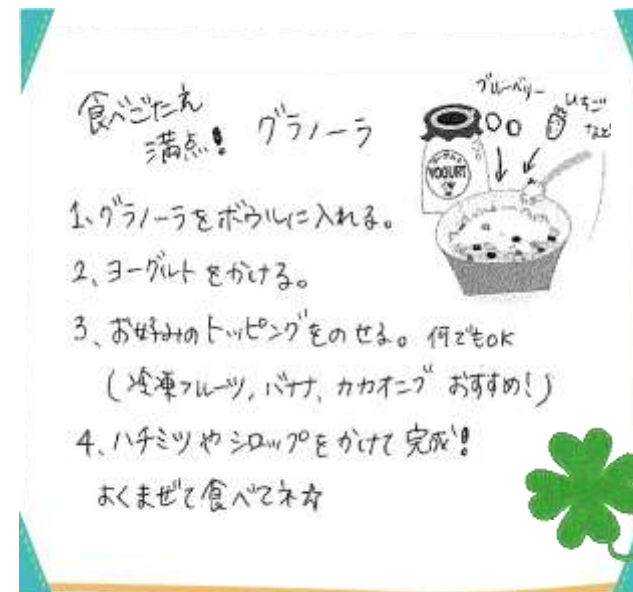 食べごたえ
満点! グラノーラ
ブルーベリー
いちご
など
YOGURT
1、グラノーラをボウルに入れる。
2、ヨーグルトをかける。
3、お好みのトッピングをのせる。何でもOK
(冷凍フルーツ, バナナ、カカオニブ おすすめ!)
4、ハチミツやシロップをかけて完成!
よくまぜて食べてネ☆